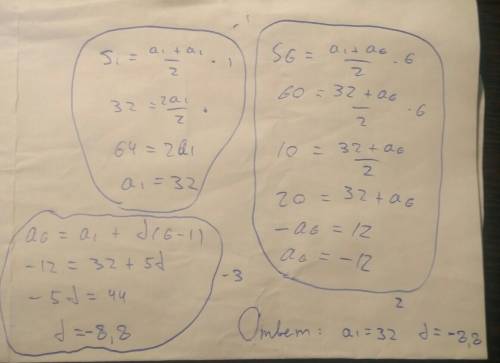 S1 = (a1 + a1)/2 · 1
32 = 2a1/2 ·
64 = 2a1
a1 = 32
S6 = (a1 + a6)/2 · 6
60 = (32 + a6)/2 · 6
10 = (32 + a6)/2
20 = 32 + a6
-a6 = 12
a6 = -12
a6 = a1 + d(6-1)
-12 = 32 + 5d
-5d = 44
d = -8,8
-3
2
Ответ: a1 = 32 d = -8,8